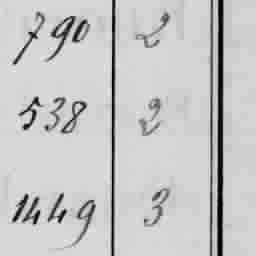 790 2
538 2
1449 3